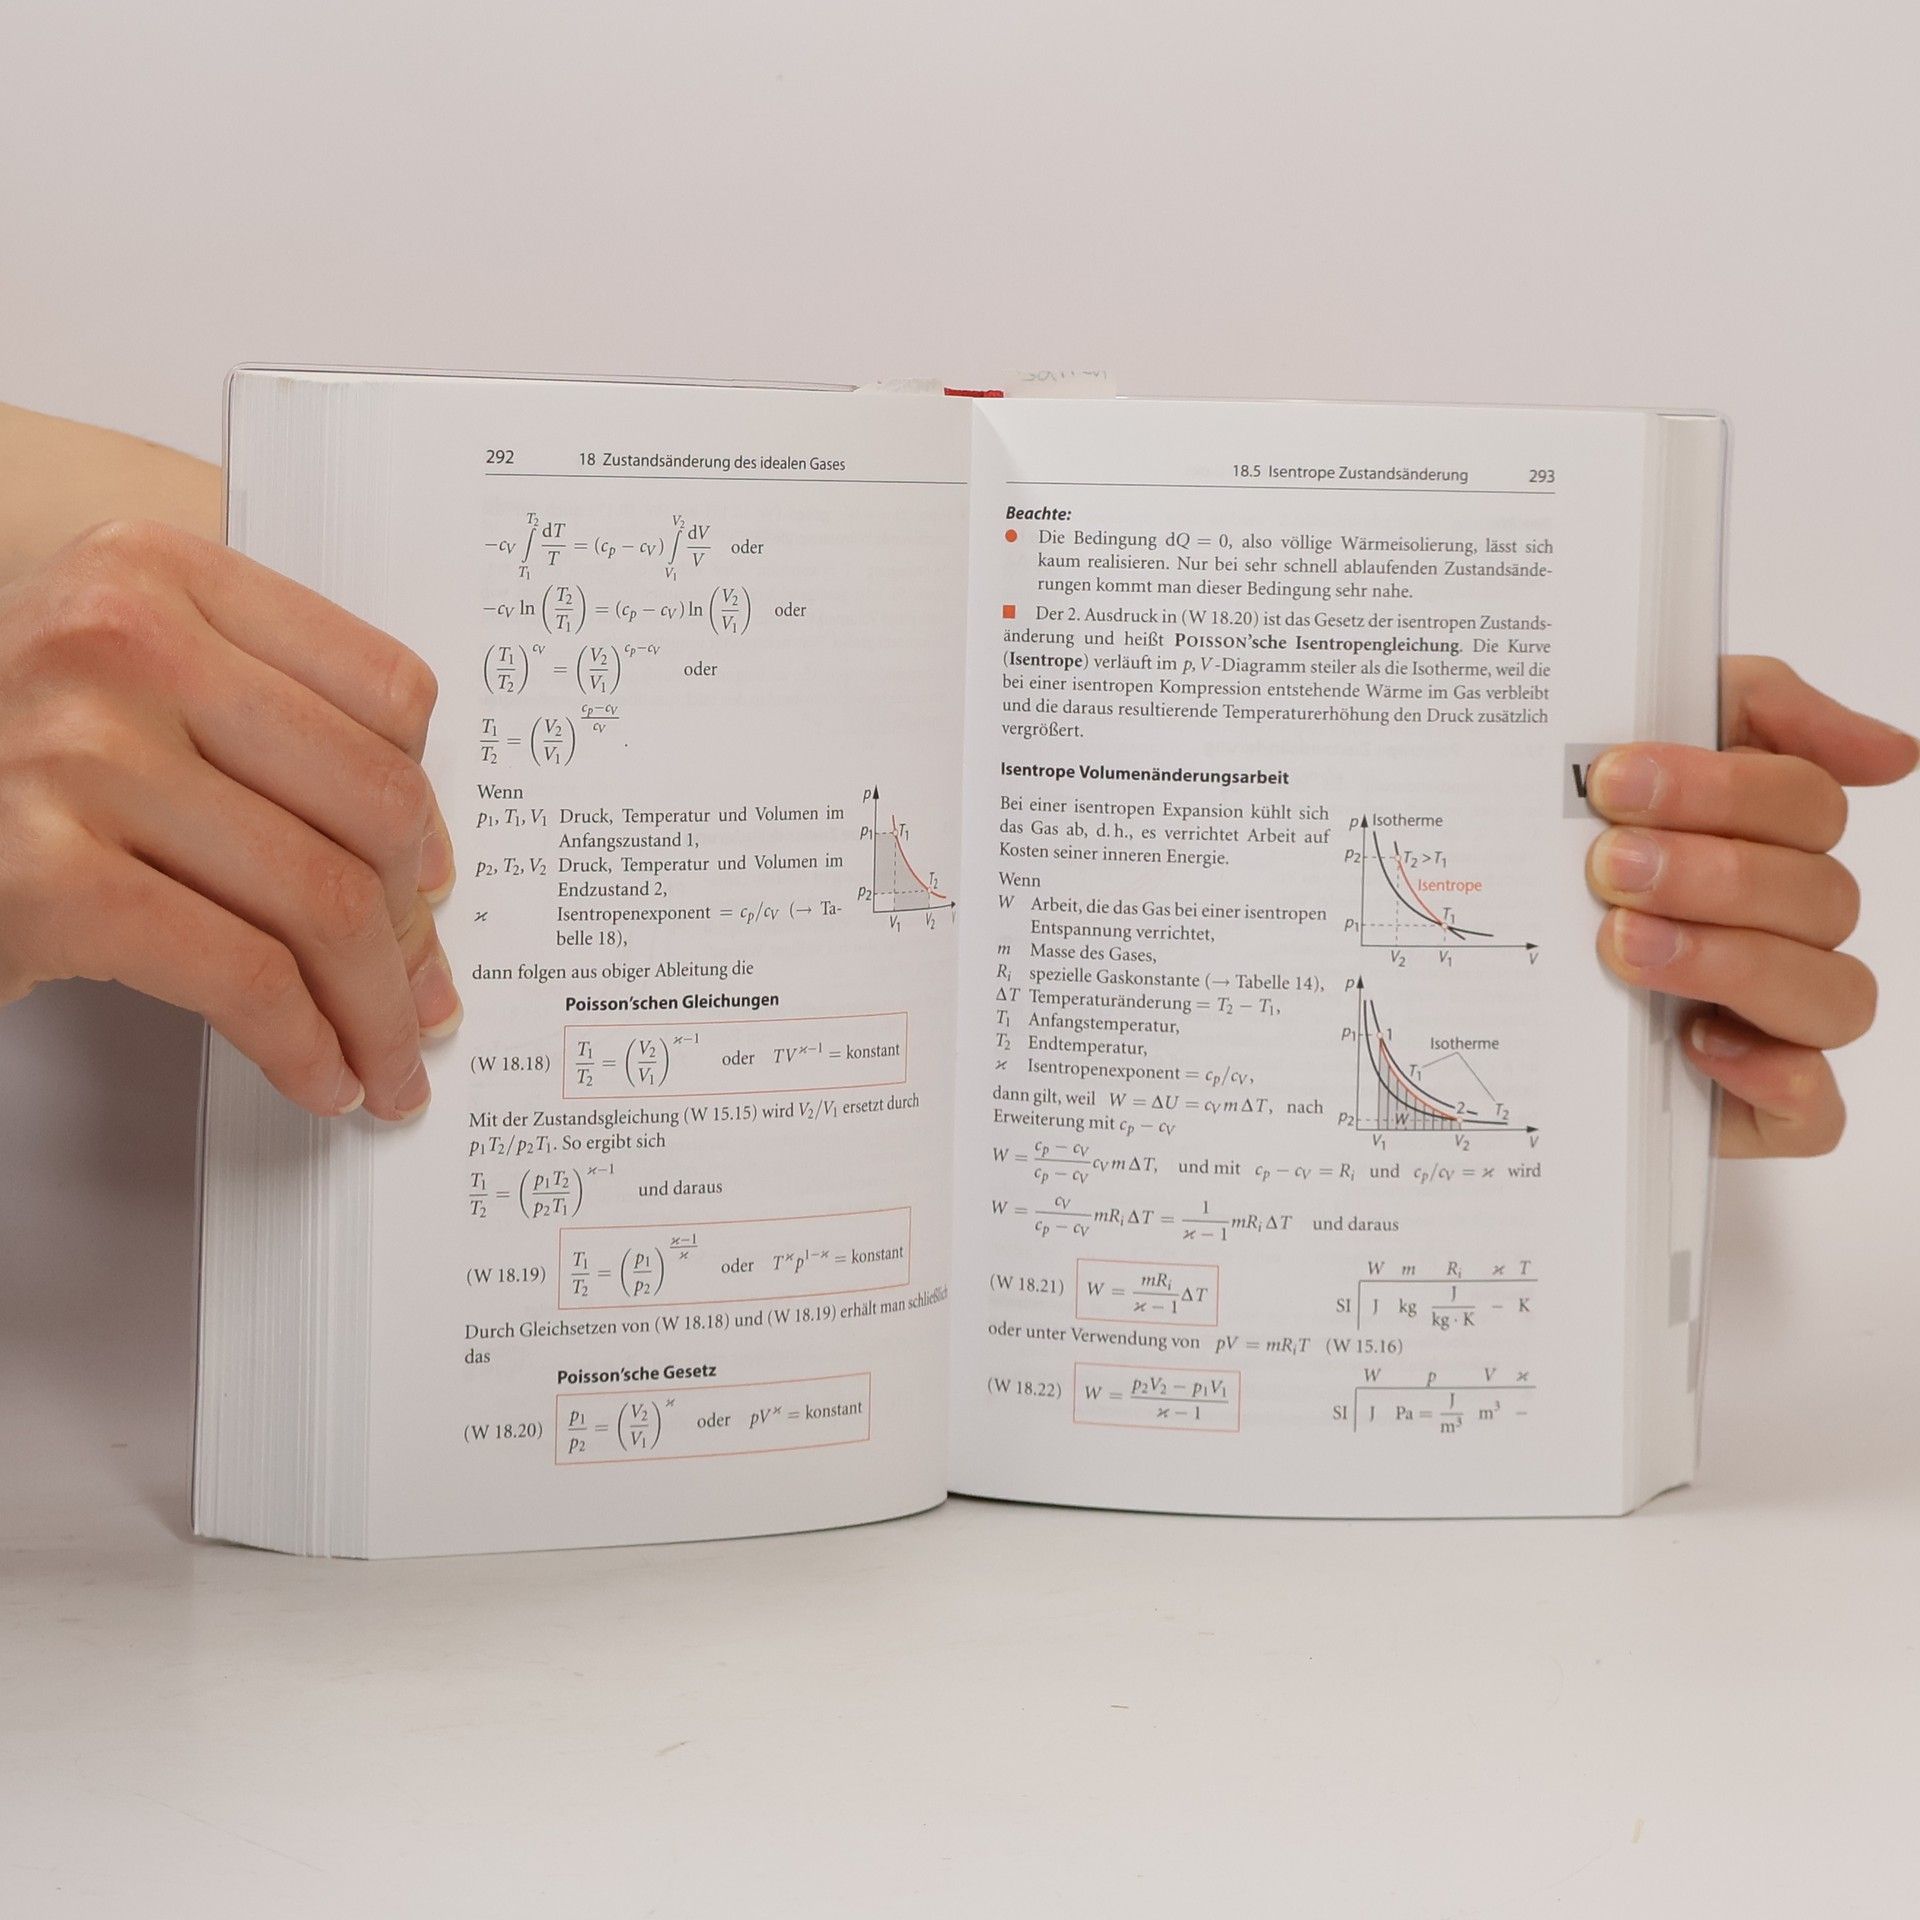 292 18 Zustandsänderung des idealen Gases
−cV ∫T1^T2 dT/T = (cp − cV) ∫V1^V2 dV/V oder
−cV ln (T2/T1) = (cp − cV) ln (V2/V1) oder
(T1/T2)^cV = (V2/V1)^(cp−cV) oder
T1/T2 = (V2/V1)^((cp−cV)/cV) .
Wenn
p1, T1, V1 Druck, Temperatur und Volumen im
Anfangszustand 1,
p2, T2, V2 Druck, Temperatur und Volumen im
Endzustand 2,
ϰ Isentropenexponent = cp/cV (→ Ta-
belle 18),
p
p1 T1
p2 T2
V1 V2
dann folgen aus obiger Ableitung die
Poisson’schen Gleichungen
(W 18.18) T1/T2 = (V2/V1)^(ϰ−1) oder TV^(ϰ−1) = konstant
Mit der Zustandsgleichung (W 15.15) wird V2/V1 ersetzt durch
p1T2/p2T1. So ergibt sich
T1/T2 = (p1T2/p2T1)^(ϰ−1) und daraus
(W 18.19) T1/T2 = (p1/p2)^((ϰ−1)/ϰ) oder T^ϰ p^(1−ϰ) = konstant
Durch Gleichsetzen von (W 18.18) und (W 18.19) erhält man schließlich
das
Poisson’sche Gesetz
(W 18.20) p1/p2 = (V2/V1)^ϰ oder pV^ϰ = konstant
18.5 Isentrope Zustandsänderung 293
Beachte:
● Die Bedingung dQ = 0, also völlige Wärmeisolierung, lässt sich
kaum realisieren. Nur bei sehr schnell ablaufenden Zustandsände-
rungen kommt man dieser Bedingung sehr nahe.
■ Der 2. Ausdruck in (W 18.20) ist das Gesetz der isentropen Zustands-
änderung und heißt POISSON’sche Isentropengleichung. Die Kurve
(Isentrope) verläuft im p, V-Diagramm steiler als die Isotherme, weil die
bei einer isentropen Kompression entstehende Wärme im Gas verbleibt
und die daraus resultierende Temperaturerhöhung den Druck zusätzlich
vergrößert.
Isentrope Volumenänderungsarbeit
Bei einer isentropen Expansion kühlt sich
das Gas ab, d. h., es verrichtet Arbeit auf
Kosten seiner inneren Energie.
Wenn
W Arbeit, die das Gas bei einer isentropen
Entspannung verrichtet,
m Masse des Gases,
Ri spezielle Gaskonstante (→ Tabelle 14),
ΔT Temperaturänderung = T2 − T1,
T1 Anfangstemperatur,
T2 Endtemperatur,
ϰ Isentropenexponent = cp/cV,
dann gilt, weil W = ΔU = cV m ΔT, nach
Erweiterung mit cp − cV
p Isotherme
p2 T2 > T1
Isentrope
p1 T1
V2 V1 V
p
p1 1
Isotherme
T1
p2 W 2 T2
V1 V2 V
W = (cp − cV)/(cp − cV) cV m ΔT, und mit cp − cV = Ri und cp/cV = ϰ wird
W = cV/(cp − cV) mRi ΔT = 1/(ϰ − 1) mRi ΔT und daraus
(W 18.21) W = mRi/(ϰ − 1) ΔT
W m Ri ϰ T
SI J kg J/(kg · K) – K
oder unter Verwendung von pV = mRiT (W 15.16)
(W 18.22) W = (p2V2 − p1V1)/(ϰ − 1)
W p V ϰ
SI J Pa = J/m³ m³ –